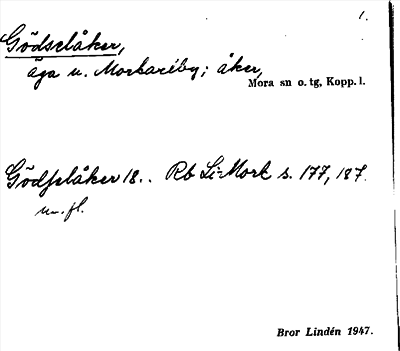 1.
Gödselåker,
äga u. Morkarlby; åker,
Mora sn o. tg, Kopp. l.
Gödselåker 18.. Rb Li-Mork s. 177, 187.
m. fl.
Bror Lindén 1947.